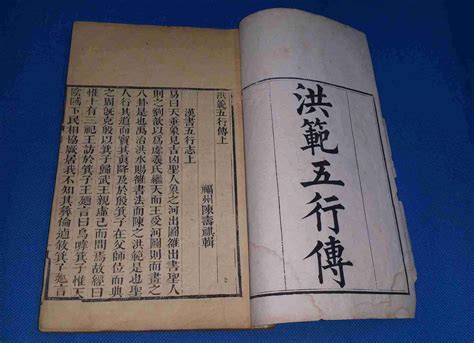 洪範五行傳
洪範五行傳上
福州陳壽祺輯
漢書五行志上
易曰天垂象見吉凶聖人象之河出圖雒出書聖人
則之劉歆以為虙羲氏繼天而王受河圖則而畫之
八卦是也禹治洪水賜雒書法而陳之洪範是也聖
人行其道而寶其真降及于殷箕子在父師位而典
之周既克殷以箕子歸武王親虛己而問焉故經曰
惟十有三祀王訪于箕子王迺言曰烏嘑箕子惟天
陰騭下民相協厥居我不知其彝倫逌敘箕子迺言